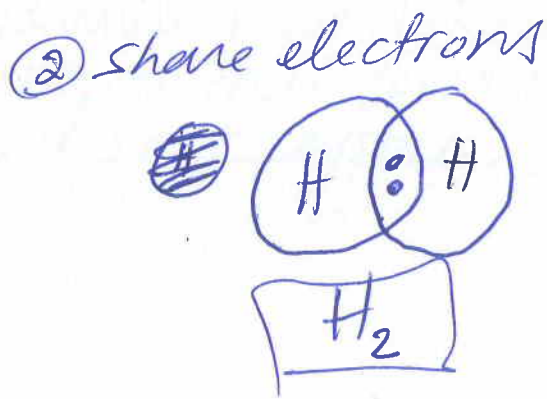 ② share electrons
H : H
H₂